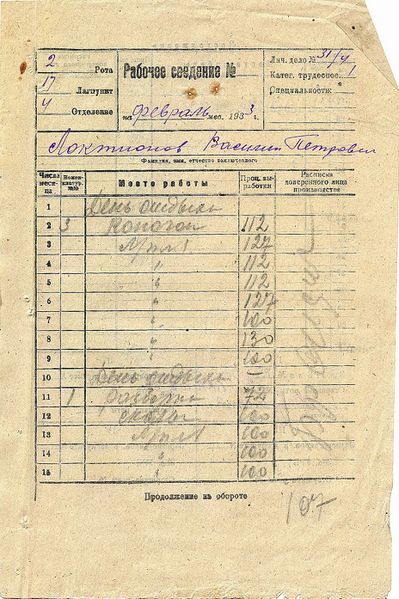 2 Рота
17 Лагпункт
4 Отделение
Рабочее сведение №
на февраль мес. 1933 г.
Лич. дело № 31/4
Катег. трудоспос. 1
Специальность:
Локтионов Василий Петрович
Фамилия, имя, отчество заключенного
Числа месяца
Место работы
Проц. выработки
Расписка доверенного лица производства
1 День отдыха
2 3 Коногон 112
3 127
4 " 112
5 " 112
6 " 127
7 " 100
8 " 130
9 " 100
10 День отдыха —
11 1 разборка 72
12 100
13 100
14 " 100
15 " 100
Продолжение на обороте
107